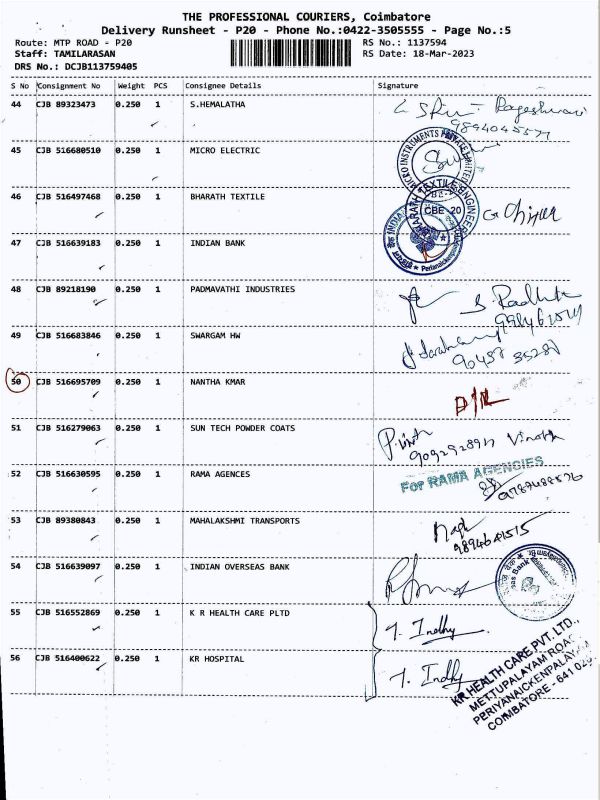 THE PROFESSIONAL COURIERS, Coimbatore
Delivery Runsheet - P20 - Phone No.:0422-3505555 - Page No.:5
Route: MTP ROAD - P20 RS No.: 1137594
Staff: TAMILARASAN RS Date: 18-Mar-2023
DRS No.: DCJB113759405
S No Consignment No Weight PCS Consignee Details Signature
44 CJB 89323473 0.250 1 S.HEMALATHA
45 CJB 516680510 0.250 1 MICRO ELECTRIC
MICRO INSTRUMENTS PRIVATE LIMITED
46 CJB 516497468 0.250 1 BHARATH TEXTILE
BHARATH TEXTILE ENGINEER
CBE - 20
47 CJB 516639183 0.250 1 INDIAN BANK
48 CJB 89218190 0.250 1 PADMAVATHI INDUSTRIES
49 CJB 516683846 0.250 1 SWARGAM HW
50 CJB 516695709 0.250 1 NANTHA KMAR
D/L
51 CJB 516279063 0.250 1 SUN TECH POWDER COATS
Vinoth
52 CJB 516630595 0.250 1 RAMA AGENCES
For RAMA AGENCIES
53 CJB 89380843 0.250 1 MAHALAKSHMI TRANSPORTS
9894641515
54 CJB 516639097 0.250 1 INDIAN OVERSEAS BANK
55 CJB 516552869 0.250 1 K R HEALTH CARE PLTD
T. Indhy
56 CJB 516400622 0.250 1 KR HOSPITAL
T. Indhy
KR HEALTH CARE PVT. LTD.,
METTUPALAYAM ROAD
PERIYANAICKENPALAYAM
COIMBATORE - 641 020